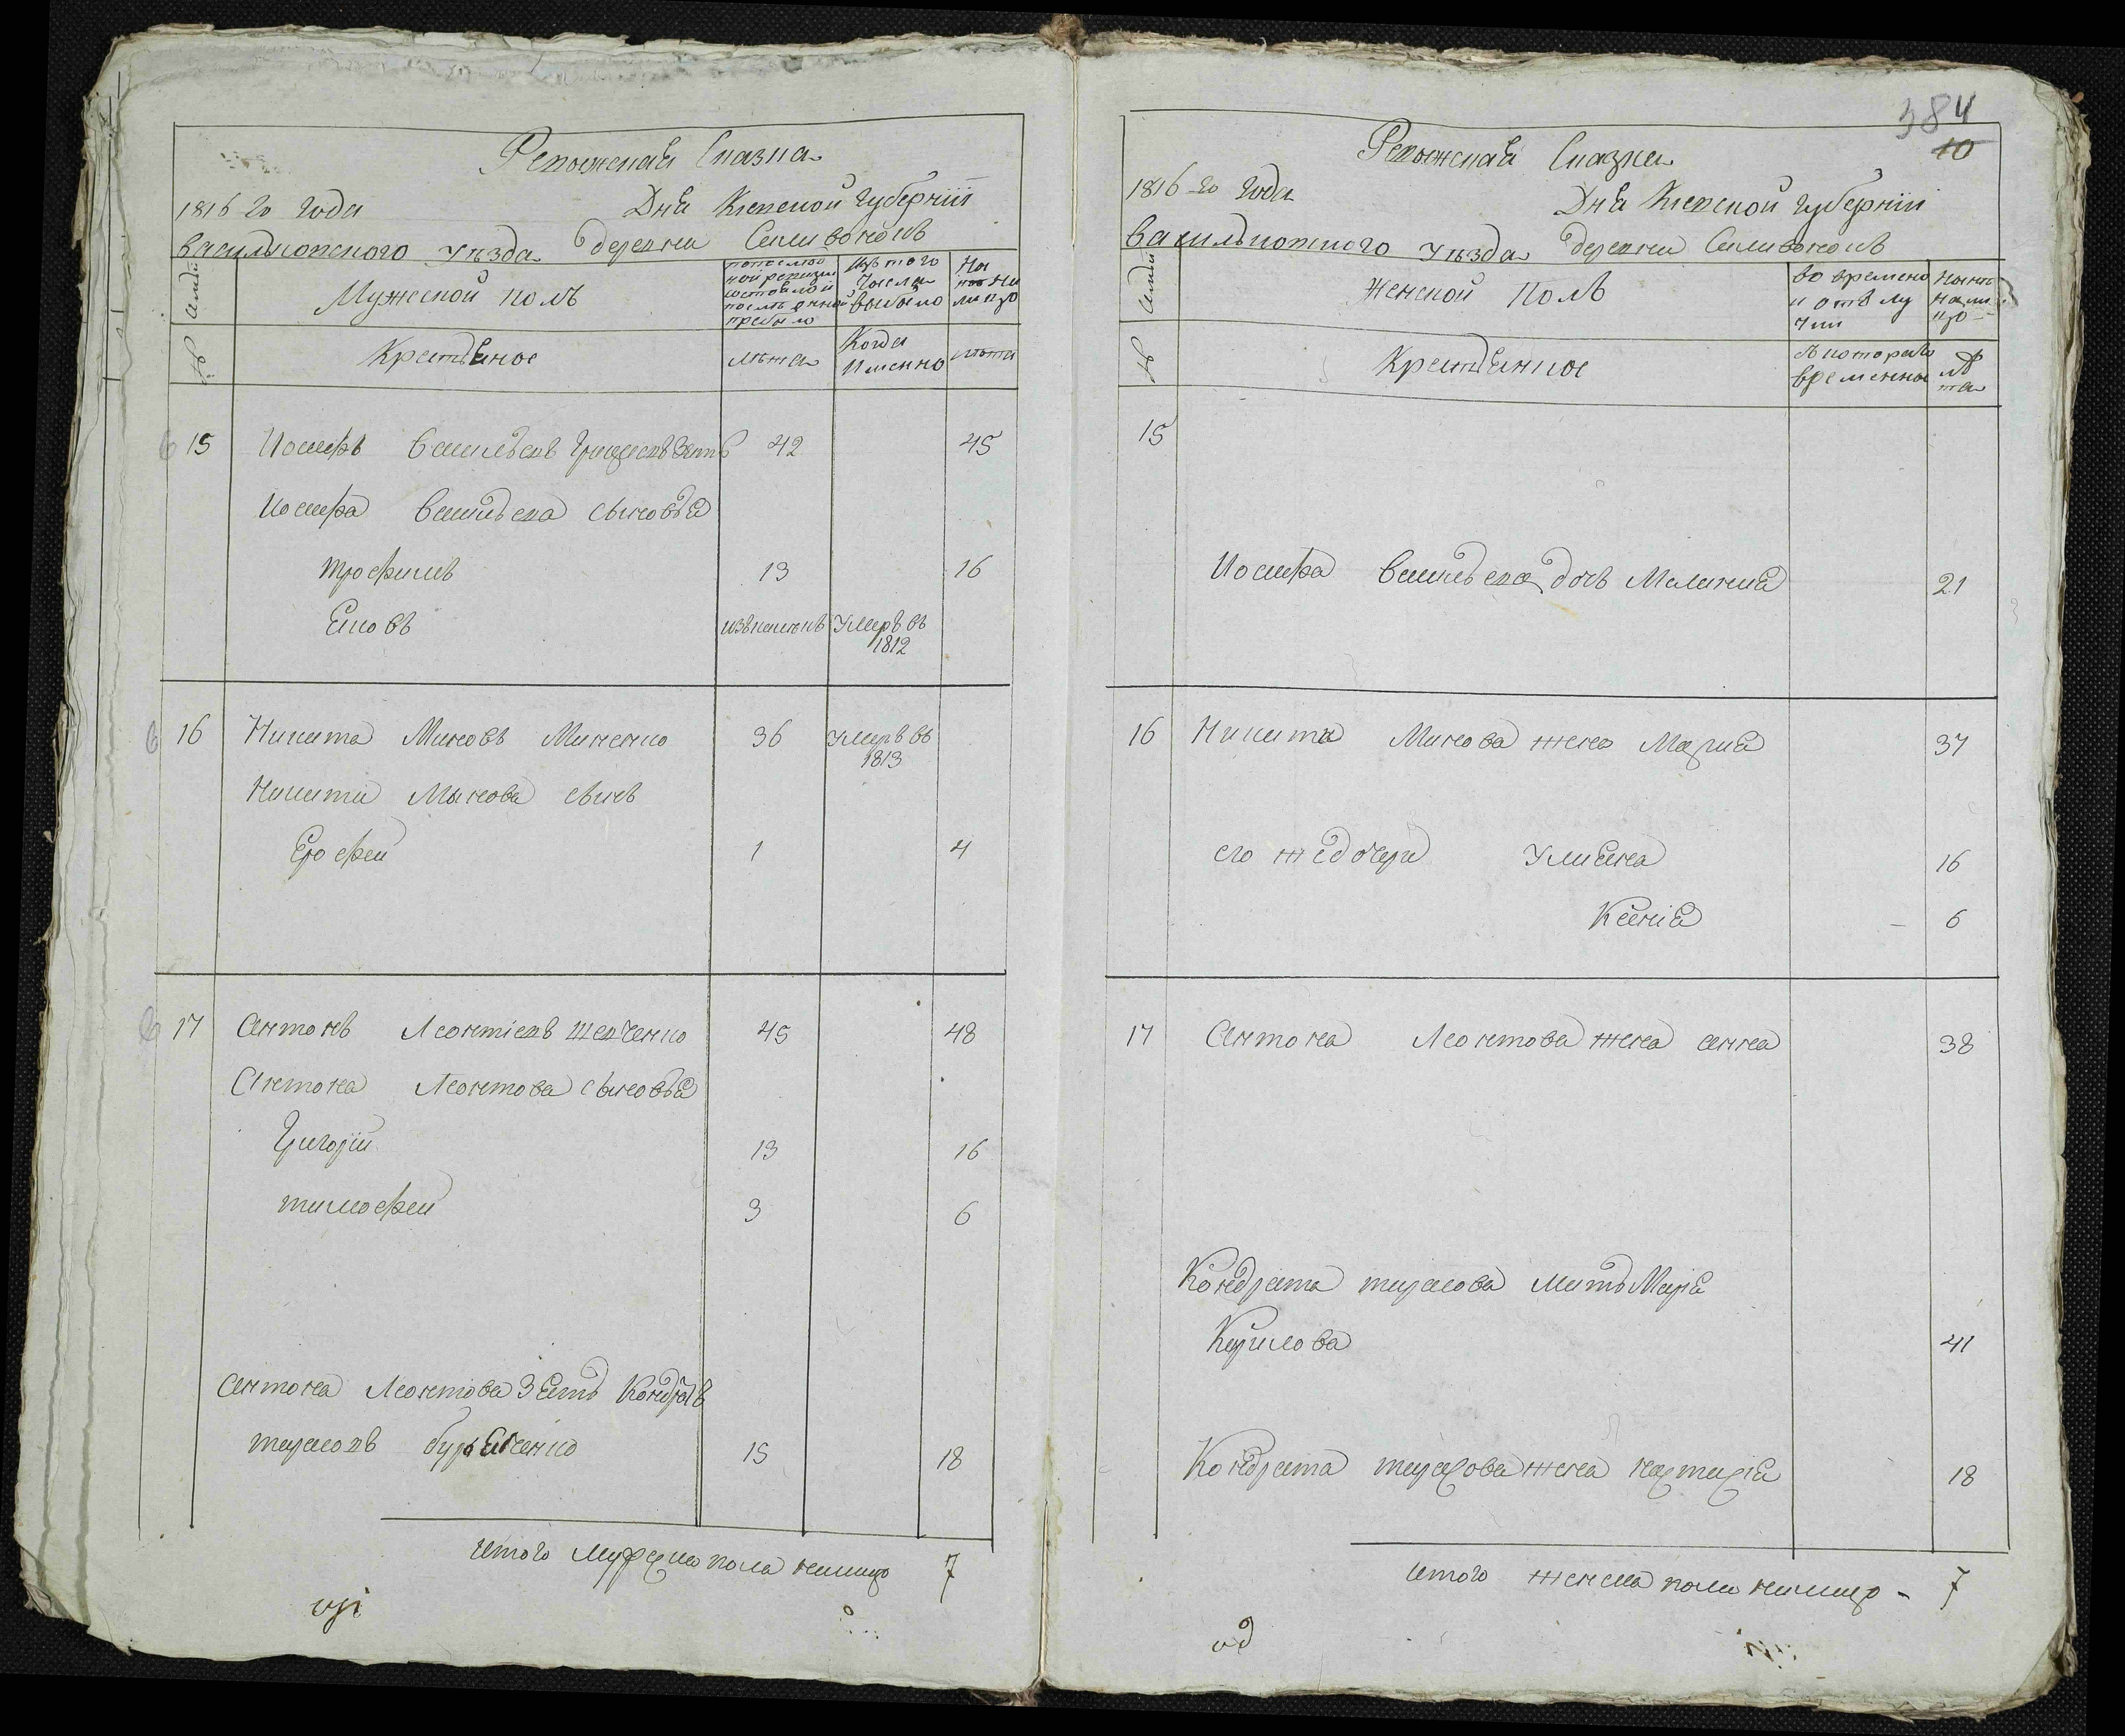 Ревижская Сказка
1816 го года Дня Киевской губернїи
васильковского уезда деревни Селивонокъ
Семьи
Мужеской полъ
по последнои ревизии состояло и после онной прибыло
Изъ того числа выбыло
На лицо
№
Крестьяное
лета
Когда именно
лета
15 Иосифъ Васильевъ Зять 42 45
Иосифа Васильева сыновья
трофимъ 13 16
Еновъ Умеръ въ 1812
16 Никита Миновъ Миненко 36 умеръ въ 1813
Никити Мынова сынъ
Ерофей 1 4
17 Антонъ Леонтїевъ шевченко 45 48
Антона Леонтова сыновья
Григорїй 13 16
тимофей 3 6
Антона Леонтова Зять Кондратъ
тарасовъ 15 18
итого мужеска пола налицо 7
384
10
Ревижская Сказка
1816-го года Дня Киевской губернїи
васильковского уезда деревни Селивонокъ
Семьи
Женской Полъ
во временно и отълучки
Ныне налицо
№
Крестьянное
съ которого временное
лета
15
Иосифа Васильева дочь Малания 21
16 Никита Минова жена Мария 37
его же дочери Улияна 16
Ксенїя 6
17 Антона Леонтова жена анна 38
Кондрата тарасова мать Марїя
Кирилова 41
Кондрата тарасова жена настасїя 18
итого женска пола налицо - 7